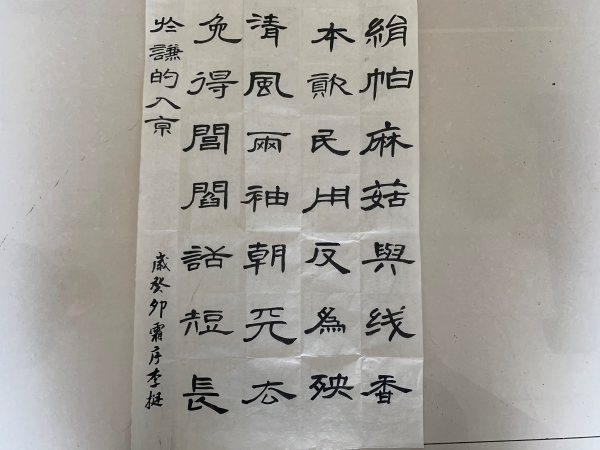 絹帕麻菇與线香
本資民用反為殃
清風兩袖朝天去
免得閭閻話短長
於謙的入京
歲癸卯霜序李挺